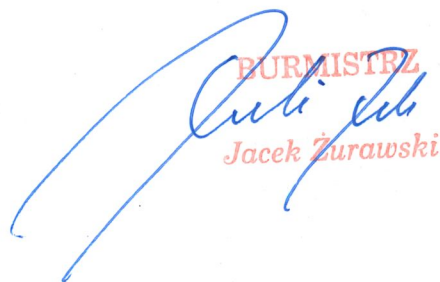 BURMISTRZ
Jacek Żurawski